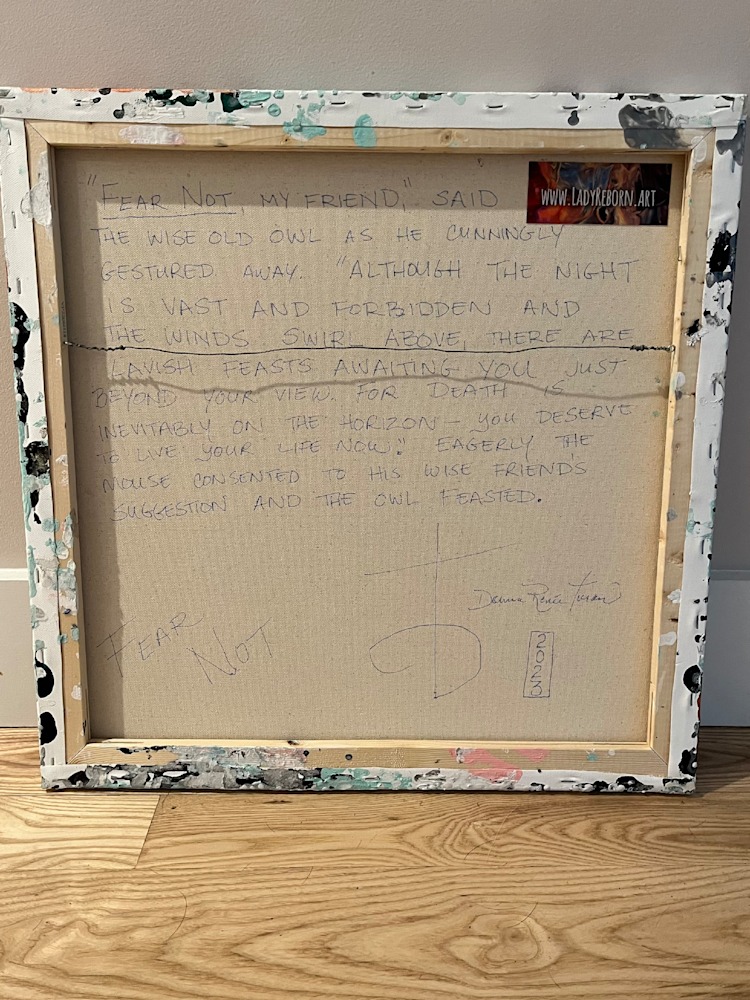 "FEAR NOT, MY FRIEND," SAID
WWW.LADYREBORN.ART
THE WISE OLD OWL AS HE CUNNINGLY
GESTURED AWAY. "ALTHOUGH THE NIGHT
IS VAST AND FORBIDDEN AND
THE WINDS SWIRL ABOVE, THERE ARE
LAVISH FEASTS AWAITING YOU JUST
BEYOND YOUR VIEW. FOR DEATH IS
INEVITABLY ON THE HORIZON - YOU DESERVE
TO LIVE YOUR LIFE NOW." EAGERLY THE
MOUSE CONSENTED TO HIS WISE FRIEND'S
SUGGESTION AND THE OWL FEASTED.
Renée
FEAR
NOT
2023